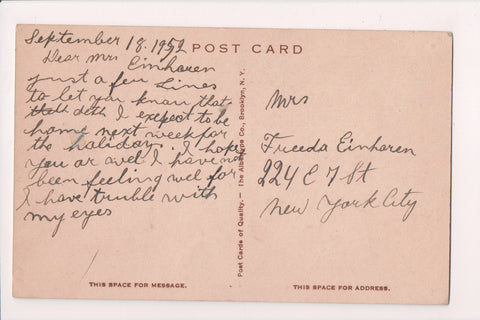 September 18. 1952
POST CARD
Dear Mrs Einhoren
just a few Lines
to let you know that
deth I expect to be
home next week for
the holiday. I hope
you ar wel I have not
been feeling wel for
I have truble with
my eyes
THIS SPACE FOR MESSAGE.
Post Cards of Quality. — The Albertype Co., Brooklyn, N. Y.
Mrs
Freeda Einhoren
224 E 7 St
New York City
THIS SPACE FOR ADDRESS.